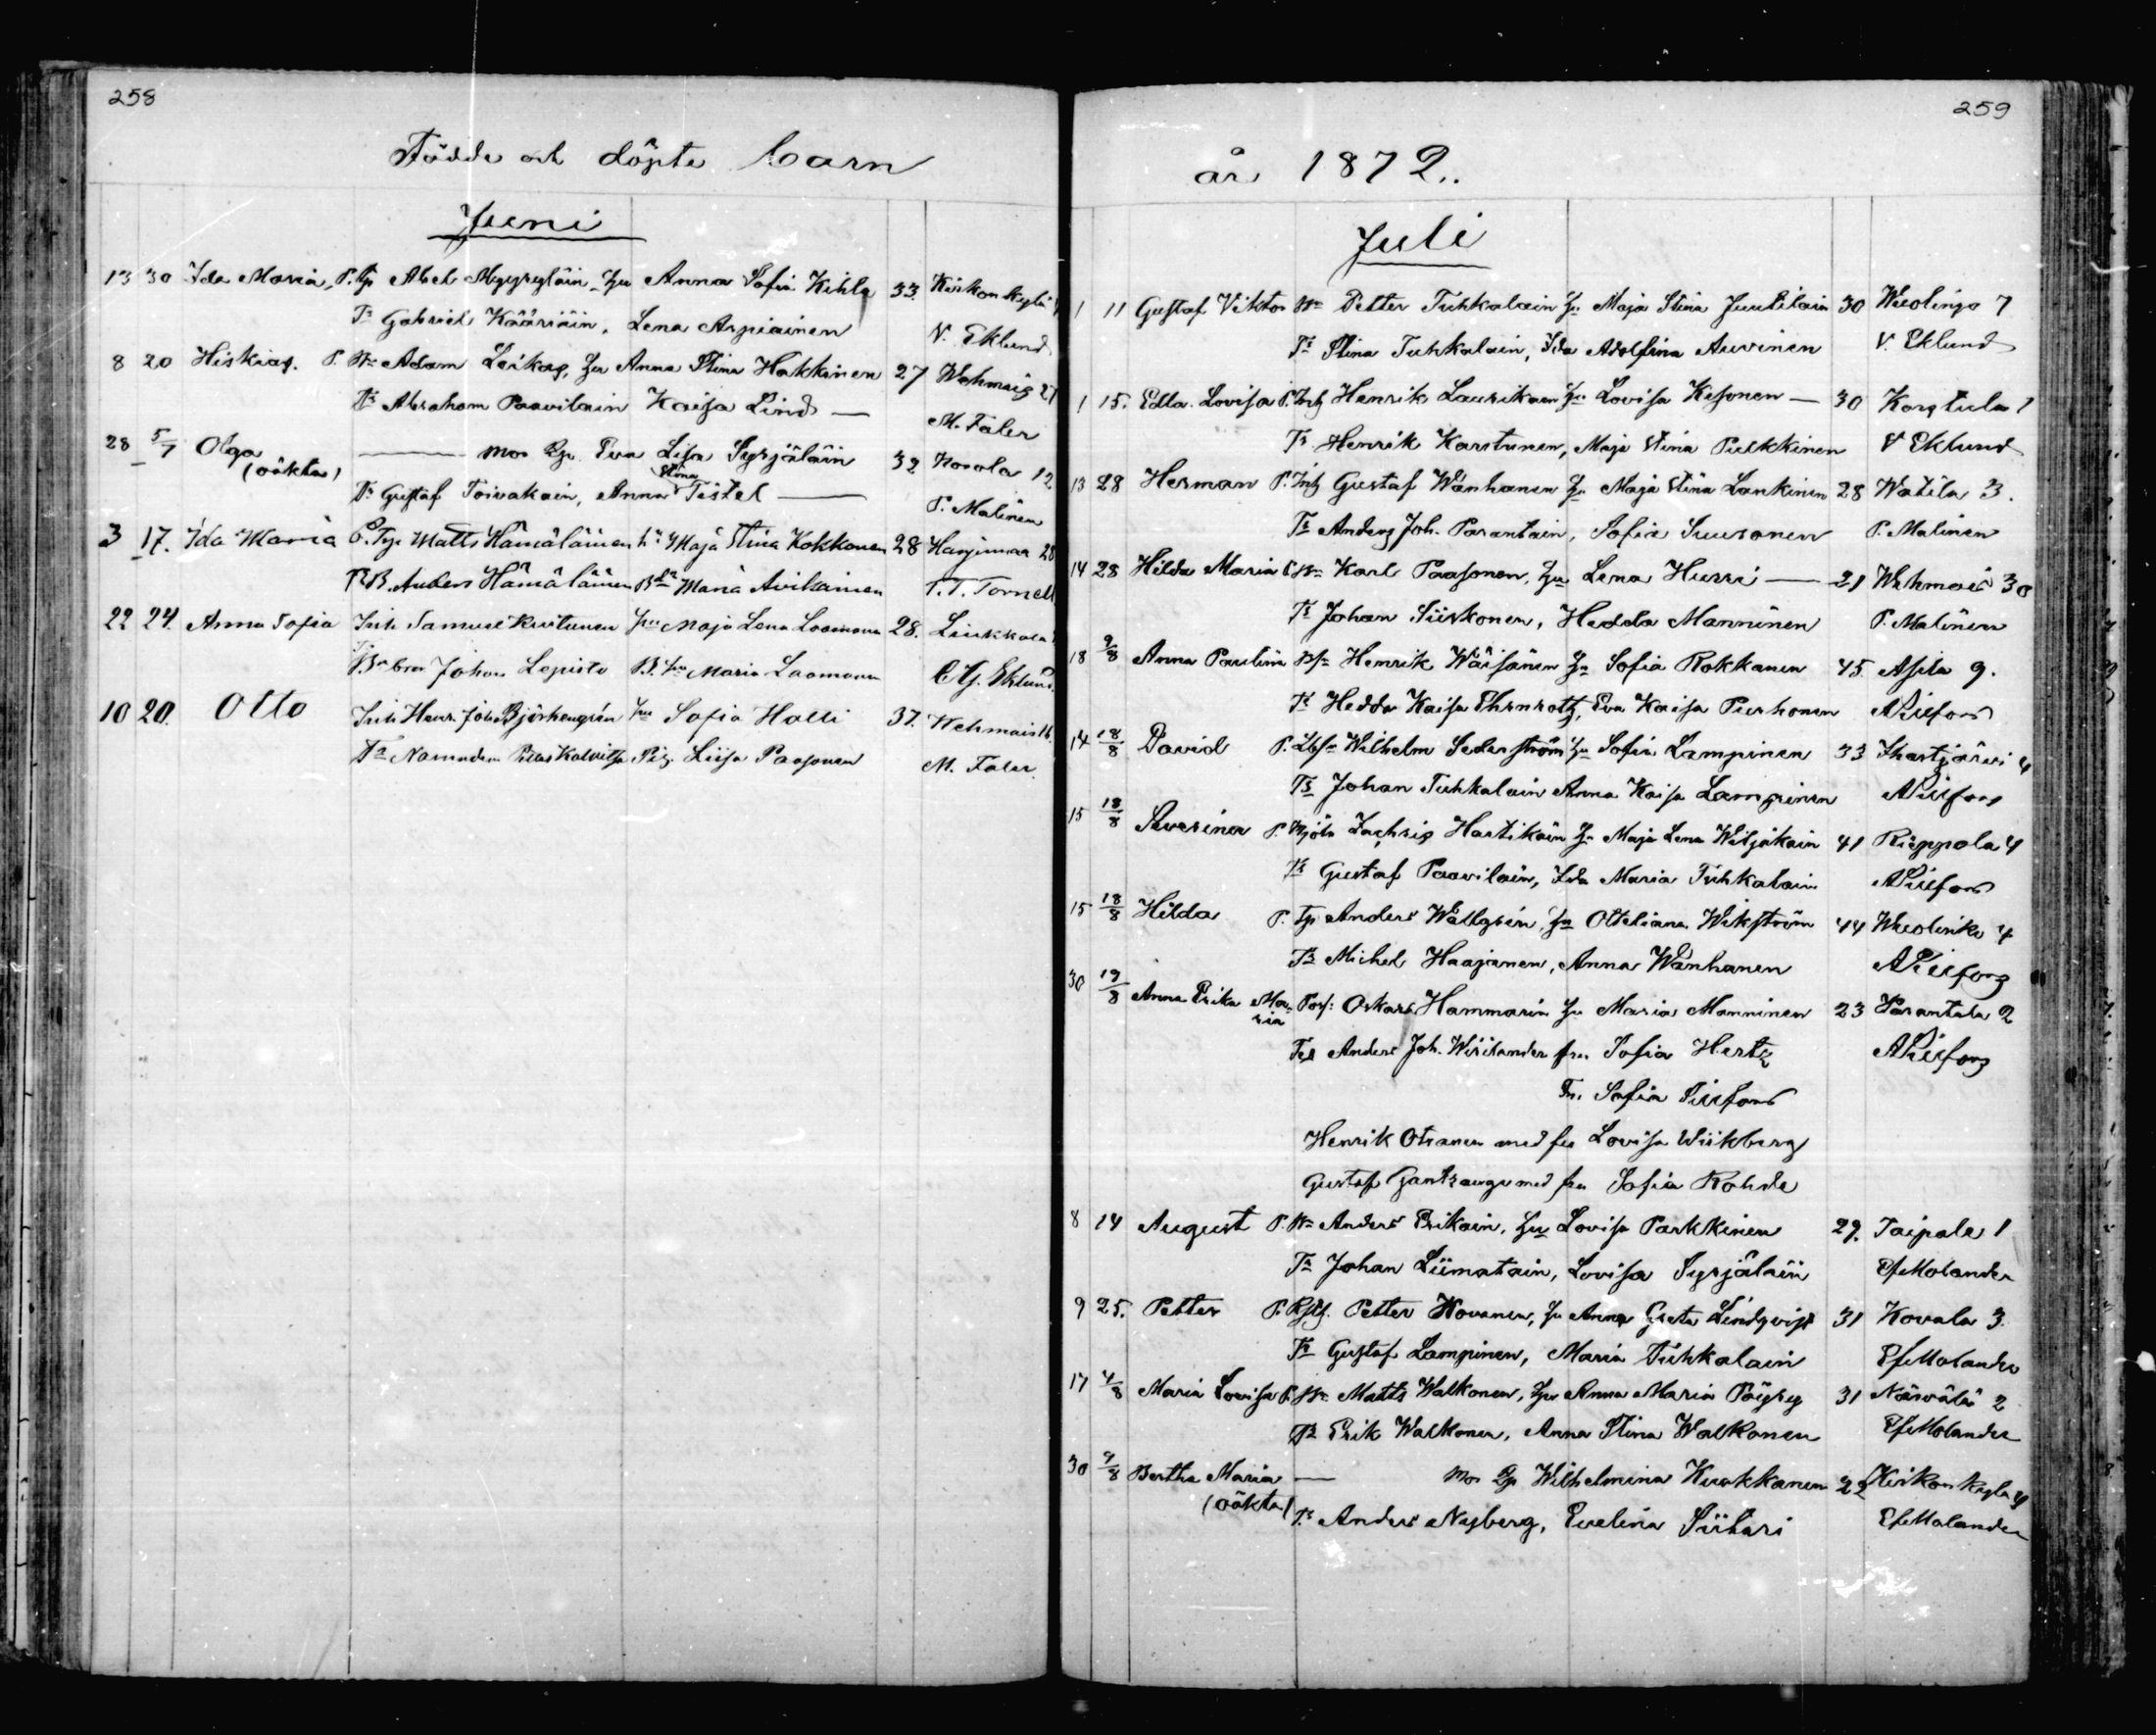 258
Födde och döpte barn
Juni
13 30 Ida Maria, P. Tp Abel Myyryläin, Hu Anna Sofia Kihla 33. Kirkonkylä
Tr Gabriel Kääriäin, Lena Arpiainen V. Eklund
8 20 Hiskias. P. Bn Adam Leikas, Hu Anna Stina Hakkinen 27 Wehmais 21
Tr Abraham Paavilain Kaisa Lind — M. Faler
28 5/7 Olga — mor Lisa Syrjäläin 32 Kovola 12
(oäkta)
Tr Gustaf Toivakain, Anna Stina Tistel — P. Malinen
3 17. Ida Maria P. Tp. Matts Hämäläinen Hu Maja Stina Kokkonen 28 Harjumaa 28
Tr B. Anders Hämäläinen Bdr Maria Avikainen T. T. Tornell
22 24. Anna Sofia Inh Samuel Kuitunen Hu Maja Lena Laamanen 28.
Johan Lepistö Maria Laamanen C. G. Eklund.
10 20. Otto Inh Henr. Johan Hu Sofia Halli 37. Wehmais 16.
Tr Pig. Liisa Paasonen M. Faler.
259
år 1872..
Juli
1 11 Gustaf Viktor Bn Petter Tuhkalain Hu Maja Stina Juutilain 30 Wuolingo 7
Tr Stina Tuhkalain, Ida Adolfina Auvinen V. Eklund
1 15. Edla Lovisa P. Inh Henrik Laurikain Hu Lovisa Kesonen — 30 Korstula 1
Tr Henrik Karstunen, Maja Stina Pulkkinen V Eklund
13 28 Herman P. Inh Gustaf Wanhanen Hu Maja Stina Lankinen 28 Watila 3.
Tr Anders Joh. Parantain, Sofia Suuronen P. Malinen
14 28 Hilda Maria P. Bn Karl Paasonen, Hu Lena Hurri — 21 Wehmais 30
Tr Johan Siiskonen, Hedda Manninen P. Malinen
18 9/8 Anna Paulina Henrik Wäisänen Hu Sofia Rokkanen 45. Asila 9.
Tr Hedda Kaisa Ehrnroth, Eva Kaisa Purhonen A Piilfors
14 18/8 David P. Wilhelm Sederström Hu Sofia Lampinen 33 Ihastjärvi 4
Tr Johan Tuhkalain Anna Kaisa Lampinen A Piilfors
15 18/8 Severina P. Mjöln Zachris Hartikain Hu Maja Lena Wiljakain 41 Rieppola 4
Tr Gustaf Paavilain, Ida Maria Tuhkalain A Piilfors
15 18/8 Hilda P. Tp Anders Wallgrén, Hu Otteliana Wikström 44 Wuolinko 4
Tr Michel Haajanen, Anna Wanhanen A Piilfors
30 19/8 Anna Erika Ma- Oskar Hammarin Hu Maria Manninen 23 Parantala 2
ria
Tr Anders Joh. fru Sofia Hertz A Piilfors
Fr. Sofia Piilfors
Henrik Otranen med fru Lovisa Wiikberg
Gustaf med fru Sofia Rohde
8 14 August P. Bn Anders Erikain, Hu Lovisa Parkkinen 29. Taipale 1
Tr Johan Liimatain, Lovisa Syrjäläin Ef Molander
9 25. Petter P. Petter Hovanen, Hu Anna Greta Lindqvist 31 Kovala 3.
Tr Gustaf Lampinen, Maria Tuhkalain Ef Molander
17 4/8 Maria Lovisa P. Bn Matts Walkonen, Hu Anna Maria Pöyry 31 Närvälä 2
Tr Erik Walkonen, Anna Stina Walkonen Ef Molander
30 9/8 Bertha Maria — Mor Wilhelmina Kuukkanen 22 Kirkonkylä 4
(oäkta) Tr Anders Nyberg, Evelina Siitari Ef Molander